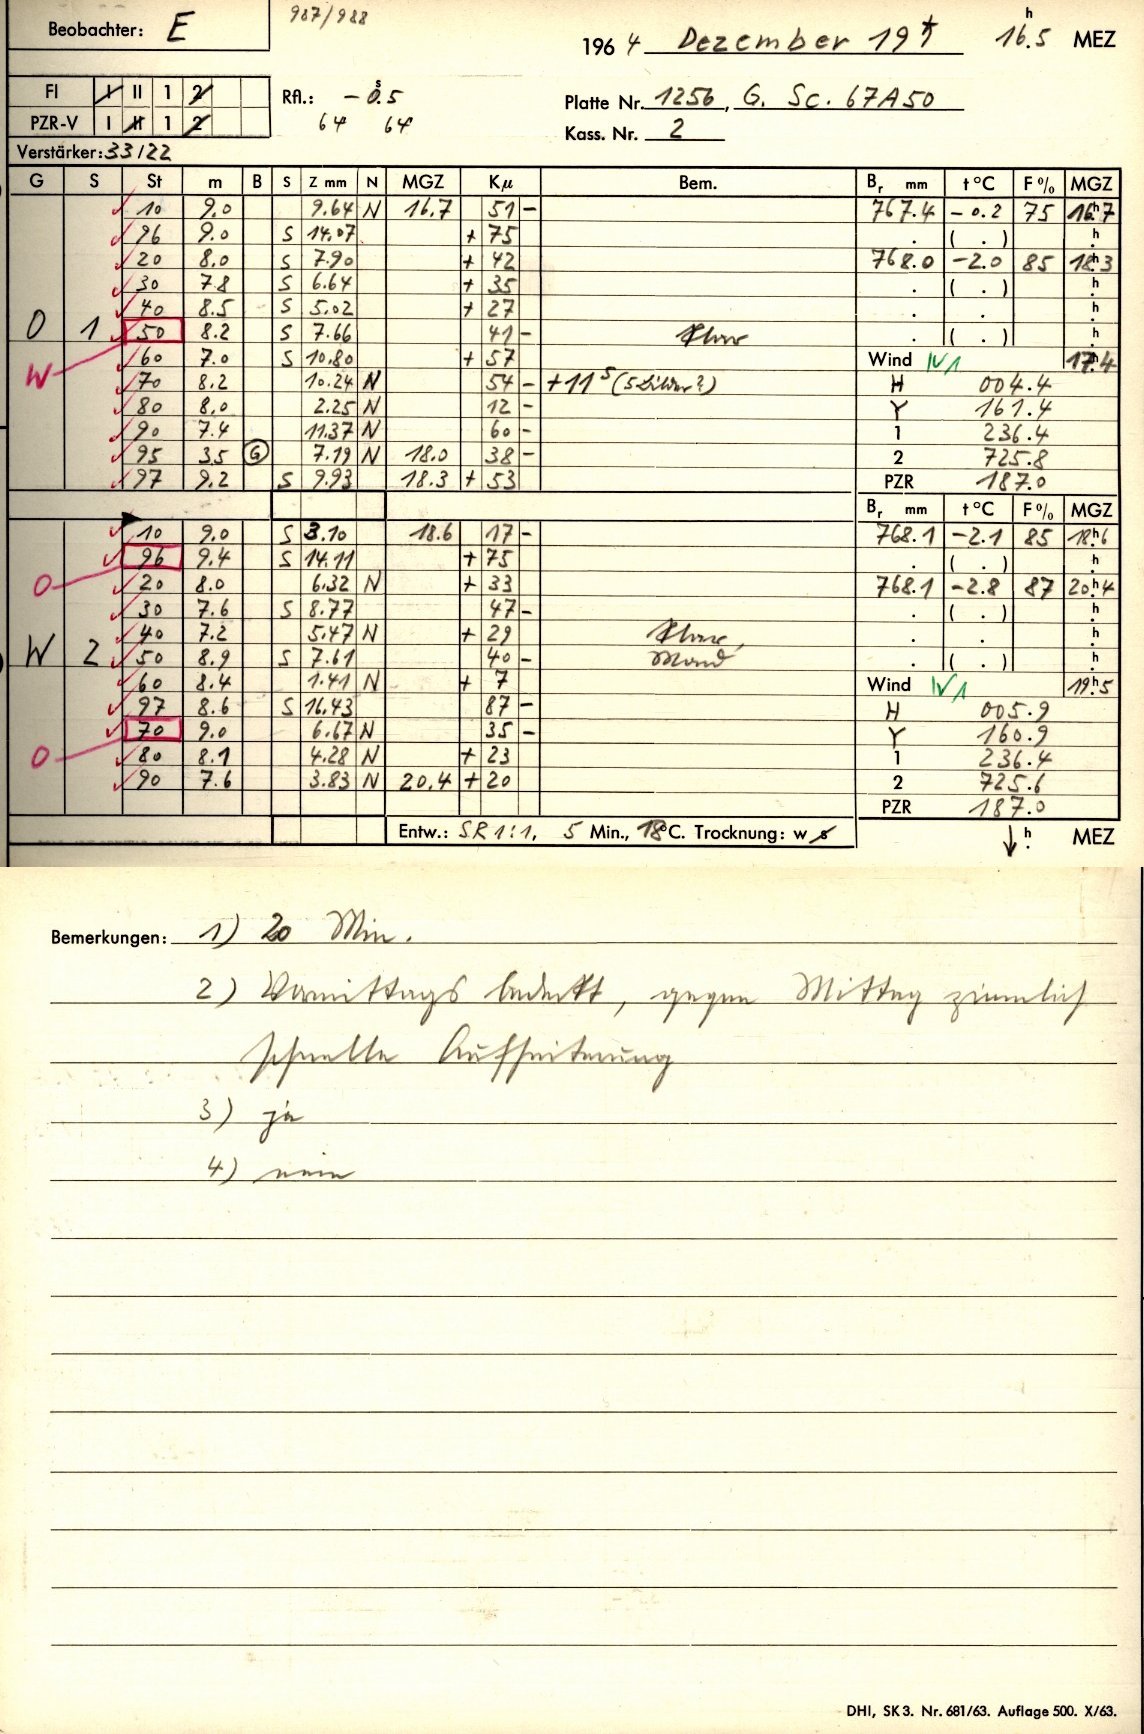 Beobachter: E
987/988
1964 Dezember 19 16.5 h MEZ
FI I II 1 2
PZR-V I II 1 2
Rfl.: - 0.5 s
64 64
Platte Nr. 1256, G. Sc. 67A50
Kass. Nr. 2
Verstärker: 33/22
G S St m B S Z mm N MGZ Kµ Bem. Br mm t°C F% MGZ
10 9.0 9.64 N 16.7 51 - 767.4 -0.2 75 16.7 h
96 9.0 S 14.07 + 75 . ( . ) h
20 8.0 S 7.90 + 42 768.0 -2.0 85 18.3 h
30 7.8 S 6.64 + 35 . ( . ) h
40 8.5 S 5.02 + 27 . . h
O 1 50 8.2 S 7.66 41 - Klar . ( . ) h
W 60 7.0 S 10.80 + 57 Wind IV1 17.4 h
70 8.2 10.24 N 54 - +11 s (5 Bilder?) H 004.4
80 8.0 2.25 N 12 - Y 161.4
90 7.4 11.37 N 60 - 1 236.4
95 3.5 G 7.19 N 18.0 38 - 2 725.8
97 9.2 S 9.93 18.3 + 53 PZR 187.0
Br mm t°C F% MGZ
10 9.0 S 3.10 18.6 17 - 768.1 -2.1 85 18.6 h
96 9.4 S 14.11 + 75 . ( . ) h
O 20 8.0 6.32 N + 33 768.1 -2.8 87 20.4 h
30 7.6 S 8.77 47 - . ( . ) h
40 7.2 5.47 N + 29 Klar, . . h
W 2 50 8.9 S 7.61 40 - Mond . ( . ) h
60 8.4 1.41 N + 7 Wind IV1 19.5 h
97 8.6 S 16.43 87 - H 005.9
70 9.0 6.67 N 35 - Y 160.9
O 80 8.1 4.28 N + 23 1 236.4
90 7.6 3.83 N 20.4 + 20 2 725.6
PZR 187.0
Entw.: SR 1:1, 5 Min., 18°C. Trocknung: w s
h MEZ
Bemerkungen: 1) 20 Min.
2) Vormittags bedeckt, gegen Mittag ziemlich
schnelle Aufheiterung
3) ja
4) nein
DHI, SK 3. Nr. 681/63. Auflage 500. X/63.